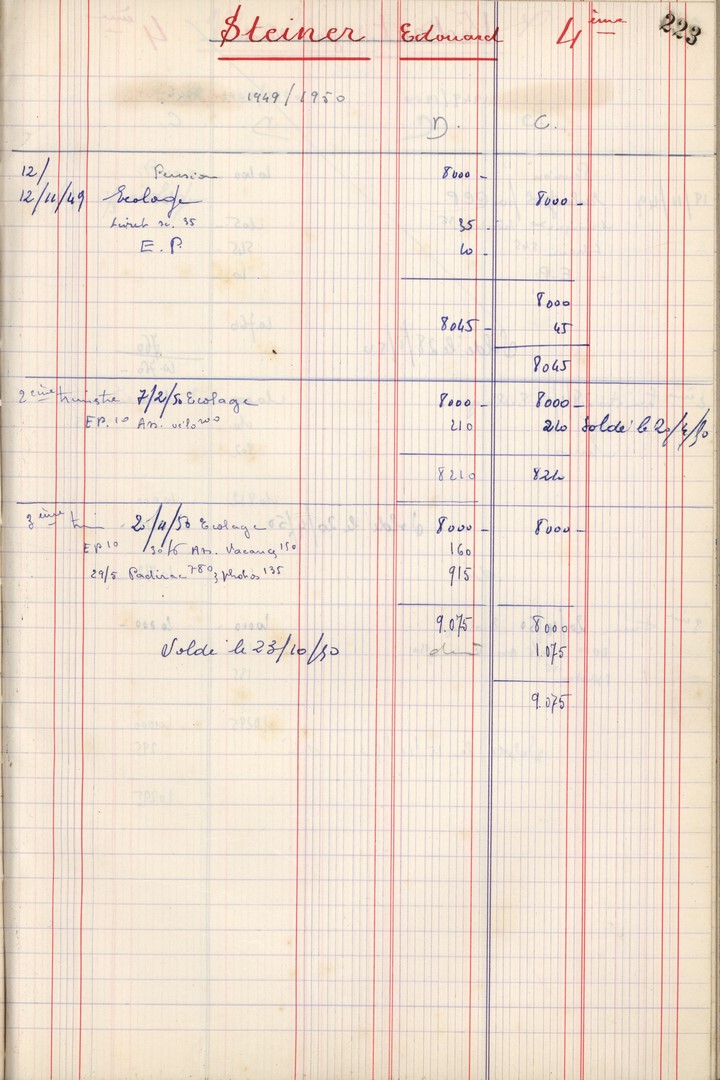 Steiner Edouard 4ème 223
1949/1950
D. C.
12/ Pension 8000 -
12/11/49 Ecolage 8000 -
Livret sc. 35 35 -
E.P. 10 -
8000
8045 - 45
8045
2ème trimestre 7/2/50 Ecolage 8000 - 8000 -
EP. 10 Ass. vélo 200 210 210 Soldé le 20/4/50
8210 8210
3ème trim 25/4/50 Ecolage 8000 - 8000 -
EP 10 30/6 Ass. Vacances 150 160
29/5 Padirac 780 3 photos 135 915
9.075 8000
Soldé le 23/10/50 1.075
9.075